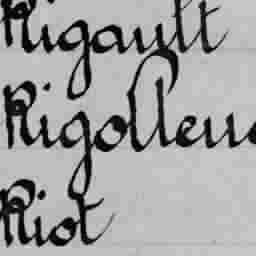 Rigault
Rigolleu
Riot